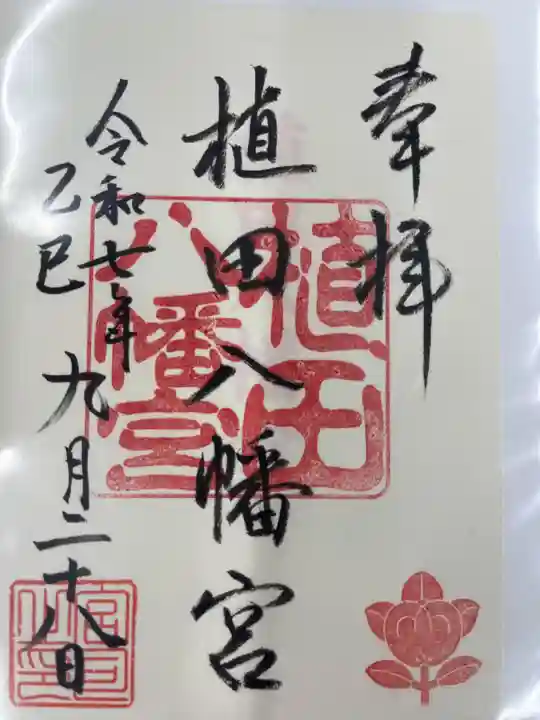 奉拝
植田八幡宮
植田
八幡宮
令和七年
乙巳
九月二十八日